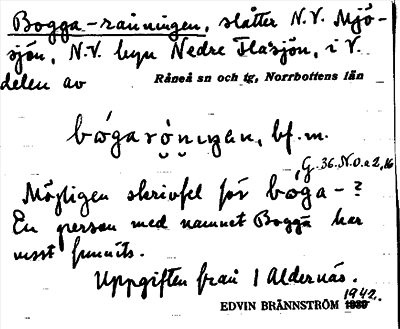 Bogga-raningen, slåtter N.V. Mjö-
sjön, N.V. byn Nedre Flåsjön, i V.
delen av Råneå sn och tg, Norrbottens län
bógarò̤ni̤ŋan, bf. m.
G. 36. N.O. a 2, 16
Möjligen skrivfel för boga-?
En person med namnet Bogga har
visst funnits.
Uppgiften från 1 Aldernäs.
1942.
EDVIN BRÄNNSTRÖM 1939